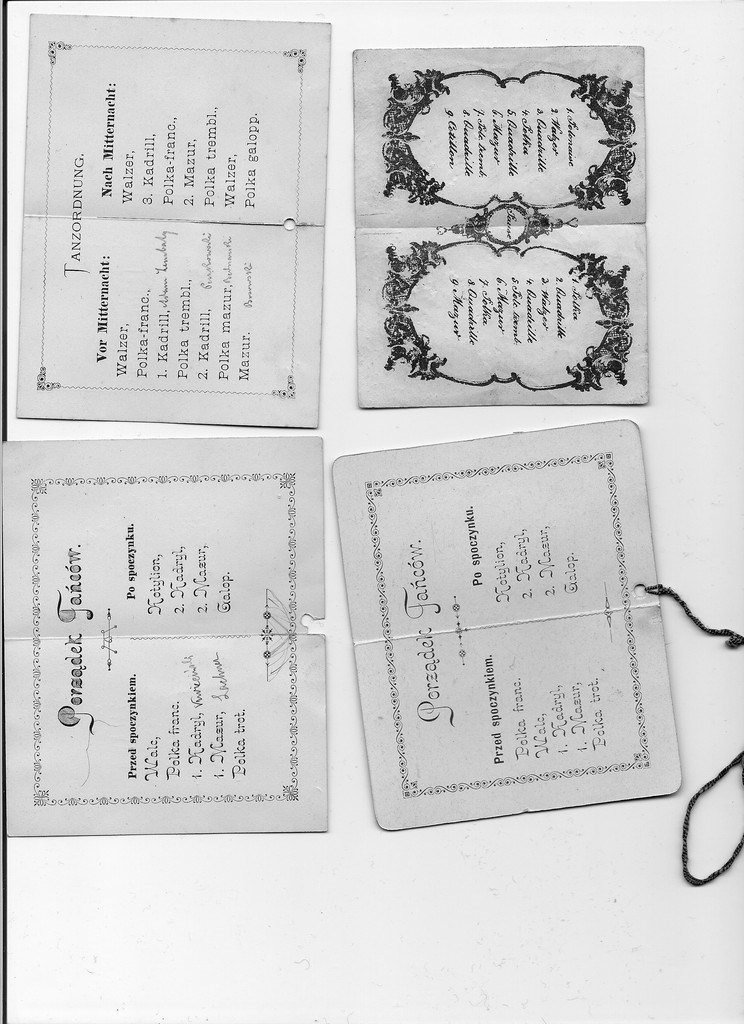 TANZORDNUNG.
Vor Mitternacht:
Walzer,
Polka-franc.,
1. Kadrill, Adam
Polka trembl.,
2. Kadrill,
Polka mazur,
Mazur.
Nach Mitternacht:
Walzer,
3. Kadrill,
Polka-franc.,
2. Mazur,
Polka trembl.,
Walzer,
Polka galopp.
1. Polka
2. Quadrille
3. Walzer
4. Quadrille
5. Pol. tremb.
6. Mazur
7. Polka
8. Quadrille
9. Mazur
Pause
1. Polonaise
2. Walzer
3. Quadrille
4. Polka
5. Quadrille
6. Mazur
7. Pol. tremb.
8. Quadrille
9. Cotillon
Porządek Tańców.
Przed spoczynkiem.
Walc,
Polka franc.
1. Kadryl,
1. Mazur, Lachner
Polka trot.
Po spoczynku.
Kotylion,
2. Kadryl,
2. Mazur,
Galop.
Porządek Tańców.
Przed spoczynkiem.
Polka franc.
Walc,
1. Kadryl,
1. Mazur,
Polka trot.
Po spoczynku.
Kotylion,
2. Kadryl,
2. Mazur,
Galop.